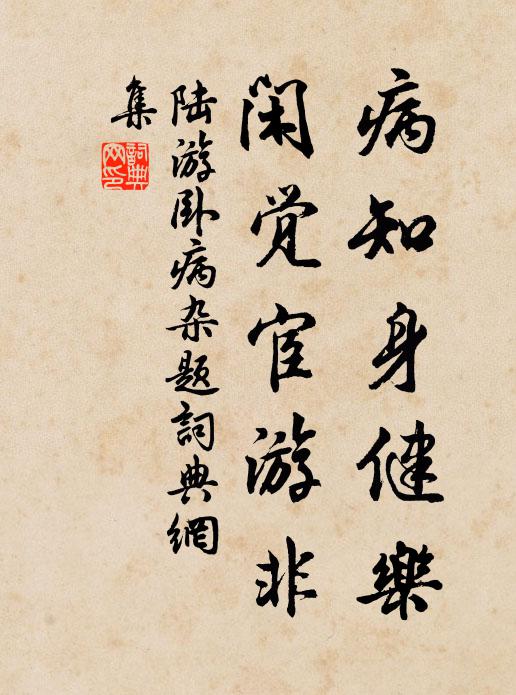 病知身健樂
闲觉宦游非
陆游卧病杂题詞典網
集
詞典
网印